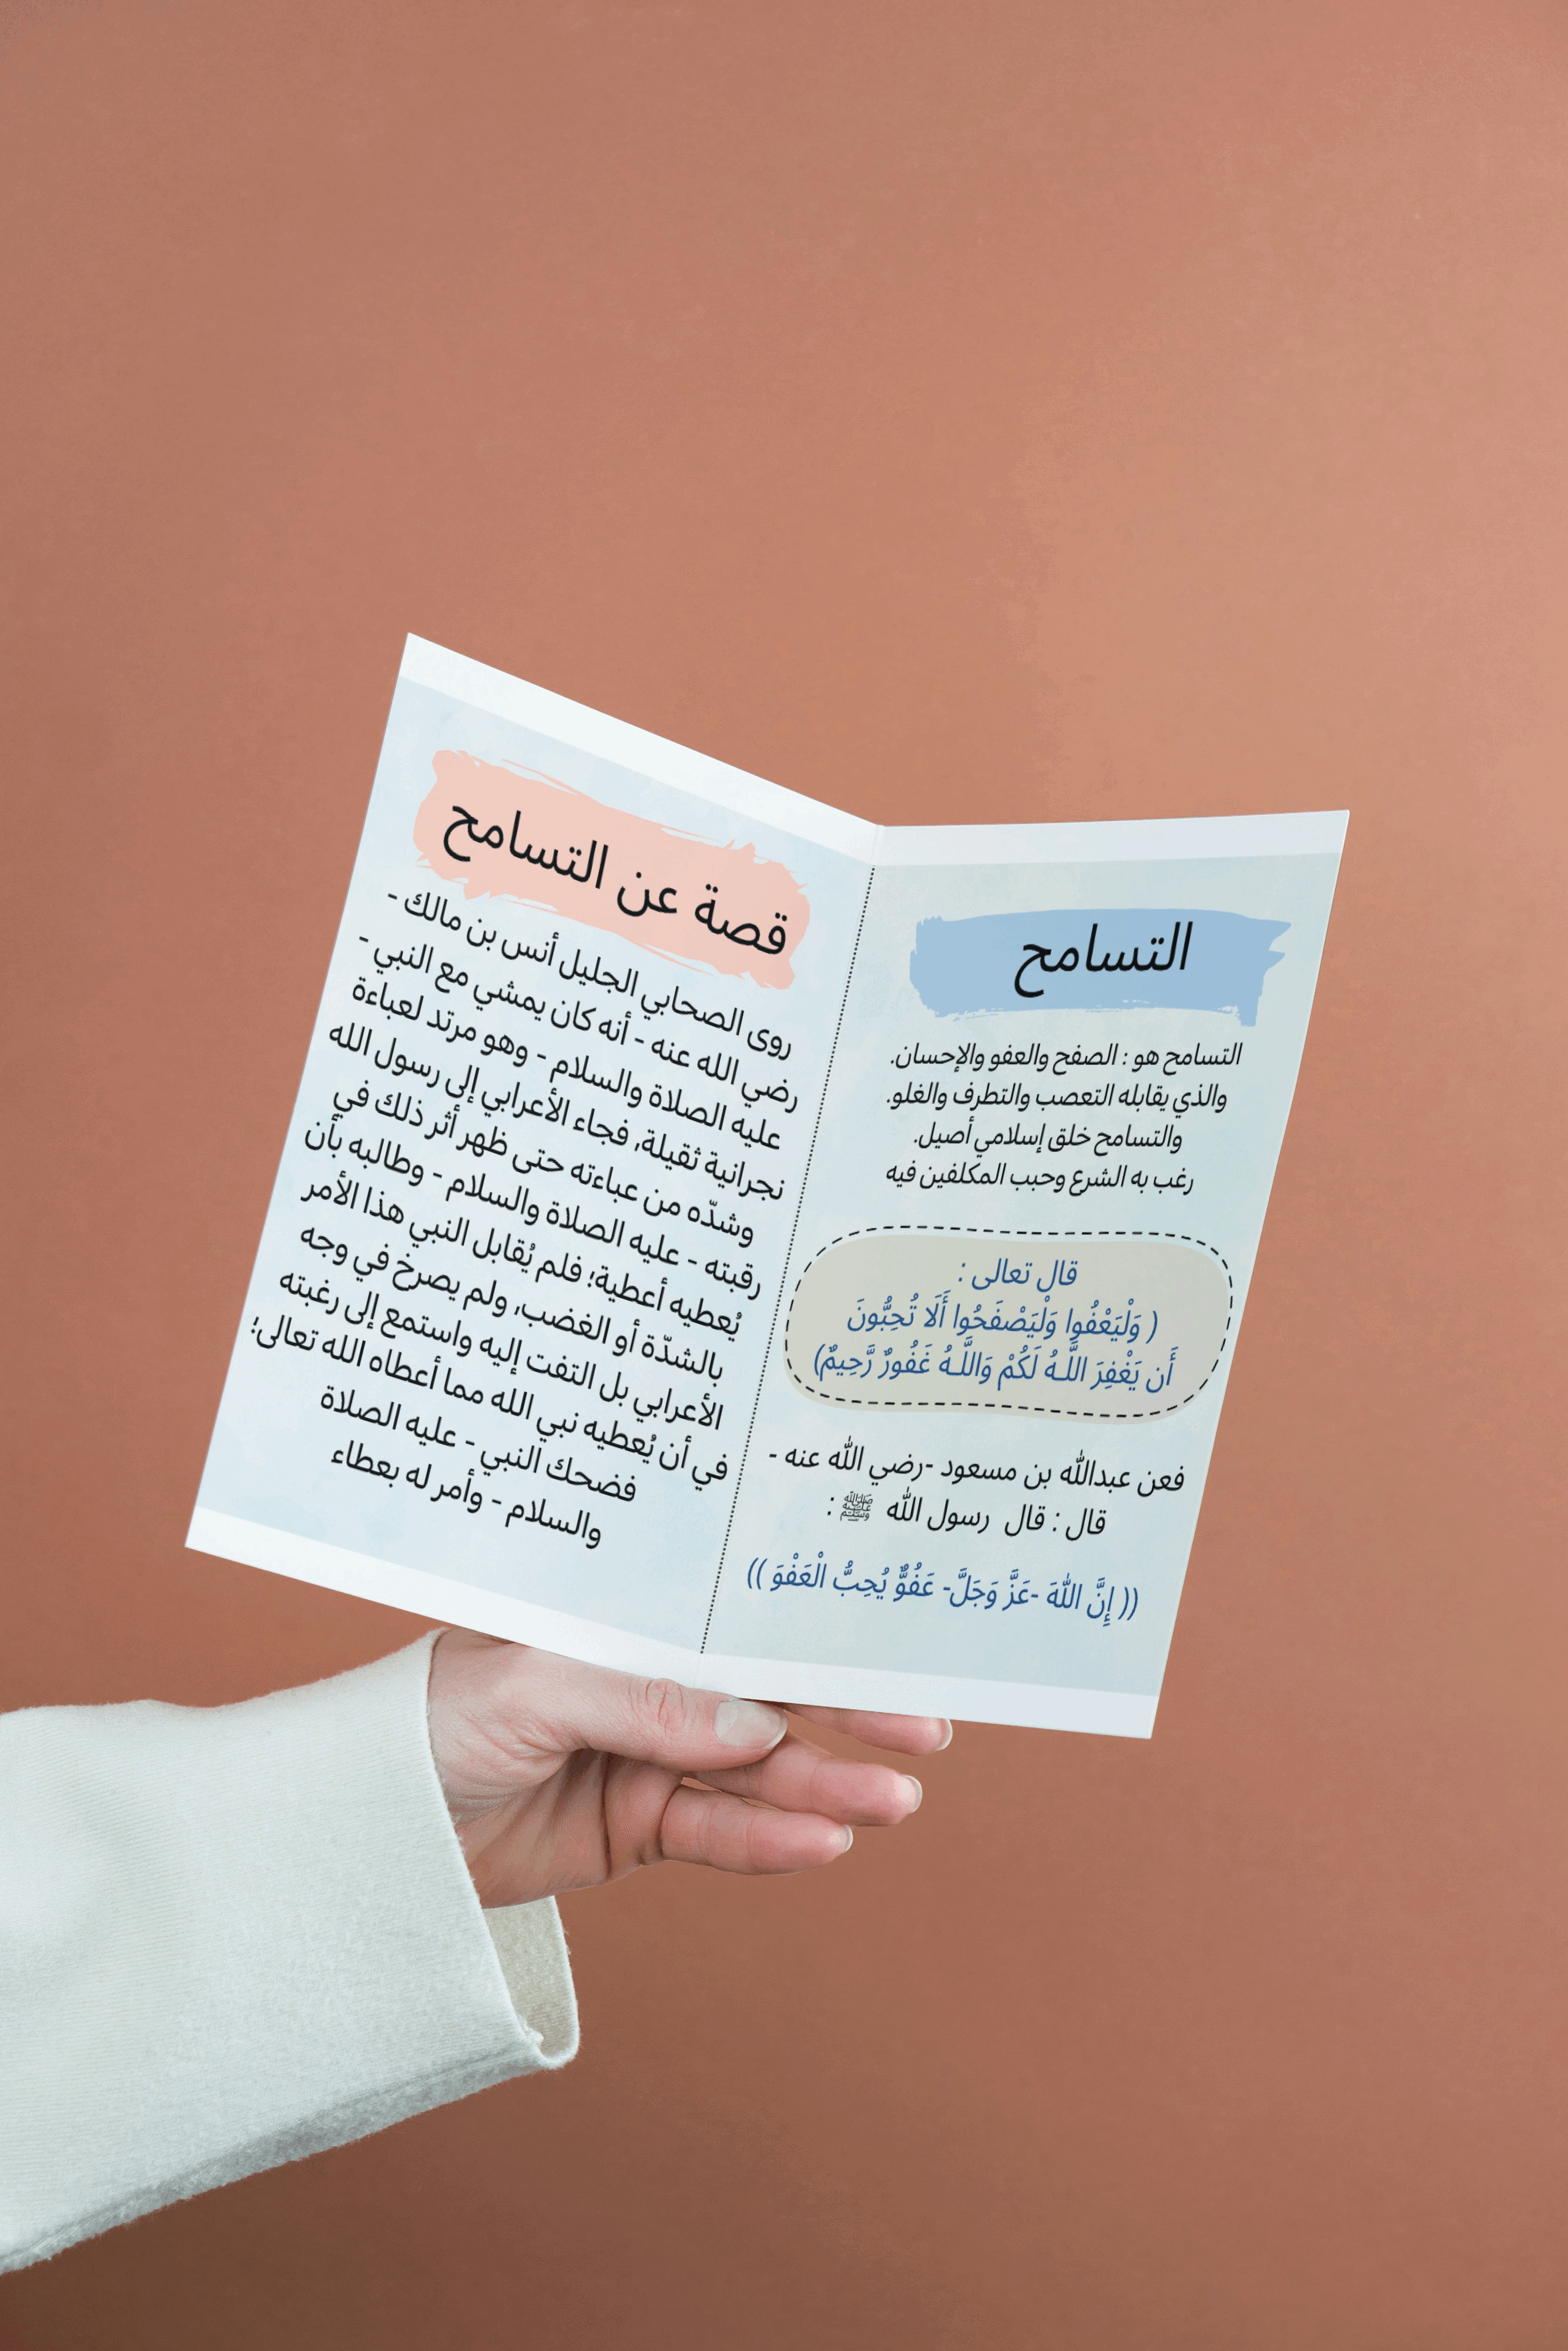 التسامح
التسامح هو : الصفح والعفو والإحسان.
والذي يقابله التعصب والتطرف والغلو.
والتسامح خلق إسلامي أصيل.
رغب به الشرع وحبب المكلفين فيه
قال تعالى :
( وَلْيَعْفُوا وَلْيَصْفَحُوا أَلَا تُحِبُّونَ
أَن يَغْفِرَ اللَّـهُ لَكُمْ وَاللَّـهُ غَفُورٌ رَّحِيمٌ)
فعن عبدالله بن مسعود -رضي الله عنه -
قال : قال رسول الله ﷺ :
(( إِنَّ اللهَ -عَزَّ وَجَلَّ- عَفُوٌّ يُحِبُّ الْعَفْوَ ))
قصة عن التسامح
روى الصحابي الجليل أنس بن مالك -
رضي الله عنه - أنه كان يمشي مع النبي -
عليه الصلاة والسلام - وهو مرتد لعباءة
نجرانية ثقيلة, فجاء الأعرابي إلى رسول الله
وشدّه من عباءته حتى ظهر أثر ذلك في
رقبته - عليه الصلاة والسلام - وطالبه بأن
يُعطيه أعطية؛ فلم يُقابل النبي هذا الأمر
بالشدّة أو الغضب, ولم يصرخ في وجه
الأعرابي بل التفت إليه واستمع إلى رغبته
في أن يُعطيه نبي الله مما أعطاه الله تعالى؛
فضحك النبي - عليه الصلاة
والسلام - وأمر له بعطاء